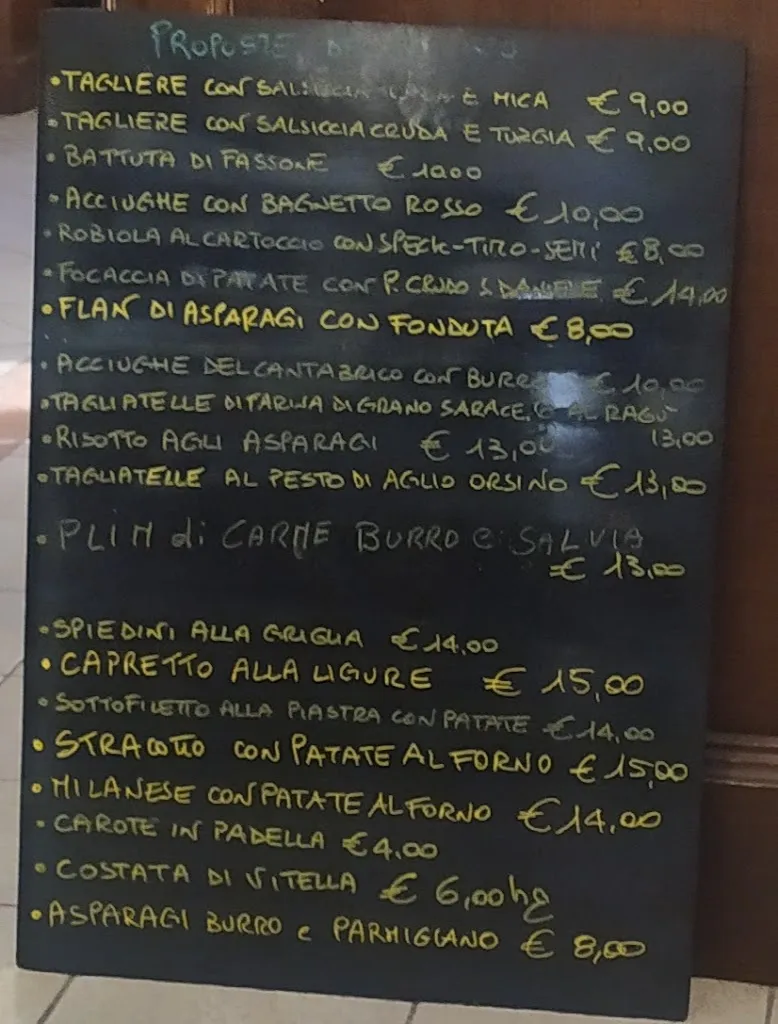 PROPOSTE
• TAGLIERE CON SALSICCIA E MICA € 9,00
• TAGLIERE CON SALSICCIA CRUDA E TURGIA € 9,00
• BATTUTA DI FASSONE € 10,00
• ACCIUGHE CON BAGNETTO ROSSO € 10,00
• ROBIOLA AL CARTOCCIO CON SPECK-TIMO-SEMI € 8,00
• FOCACCIA DI PATATE CON P. CRUDO S. DANIELE € 14,00
• FLAN DI ASPARAGI CON FONDUTA € 8,00
• ACCIUGHE DEL CANTABRICO CON BURRO € 10,00
• TAGLIATELLE DI FARINA DI GRANO SARACENO AL RAGÙ
• RISOTTO AGLI ASPARAGI € 13,00 13,00
• TAGLIATELLE AL PESTO DI AGLIO ORSINO € 13,00
• PLIN di CARNE BURRO e SALVIA
€ 13,00
• SPIEDINI ALLA GRIGLIA € 14,00
• CAPRETTO ALLA LIGURE € 15,00
• SOTTOFILETTO ALLA PIASTRA CON PATATE € 14,00
• STRACOTTO CON PATATE AL FORNO € 15,00
• MILANESE CON PATATE AL FORNO € 14,00
• CAROTE IN PADELLA € 4,00
• COSTATA DI VITELLA € 6,00 hg
• ASPARAGI BURRO e PARMIGIANO € 8,00